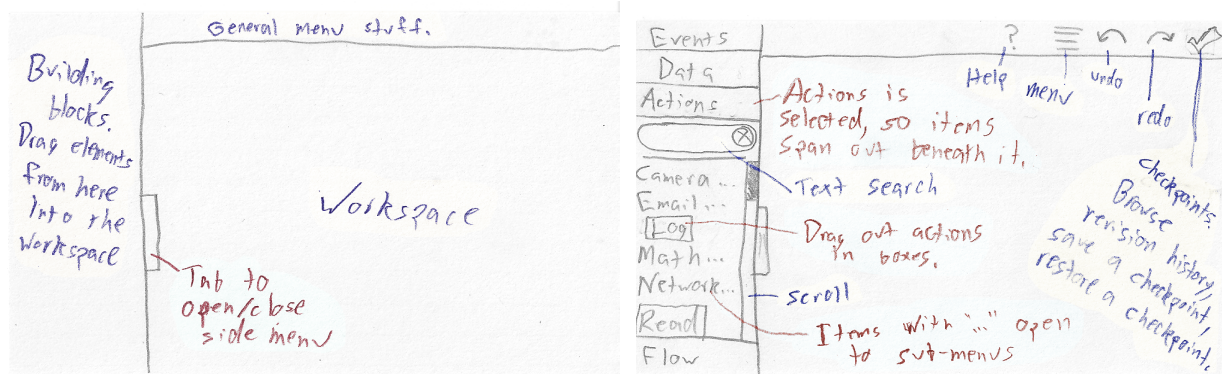 General menu stuff.
Building
blocks.
Drag elements
from here
into the
workspace
Workspace
Tab to
open/close
side menu
Events
Data
Actions
Camera...
Email...
Log
Math...
Network...
Read
Flow
Actions is
selected, so items
span out beneath it.
Text search
Drag out actions
in boxes.
scroll
Items with "..." open
to sub-menus
?
Help
menu
undo
redo
Checkpoints.
Browse
revision history,
save a checkpoint,
restore a checkpoint.